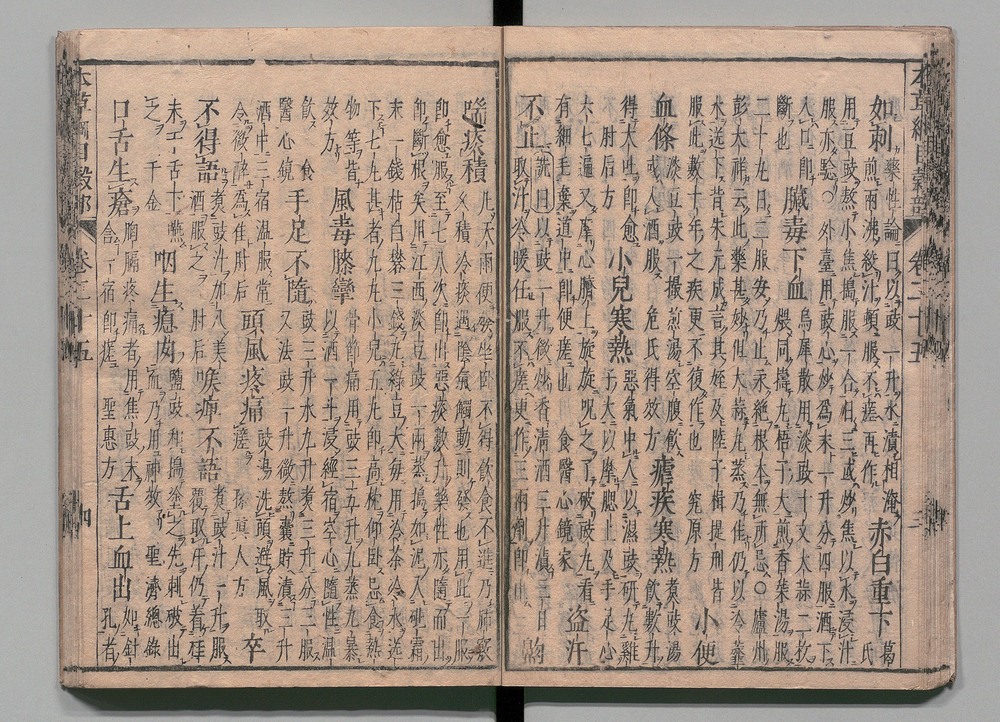 本草綱目穀部 卷二十五 三
如刺 藥性論曰以豉一升水漬相淹
煎兩沸絞汁頓服不瘥再作 赤白重下 葛
氏
用豆豉熬小焦搗服一合日三或炒焦以水浸汁
服亦驗○外臺用豉心炒為末一升分四服酒下
入口即
斷也 臟毒下血 烏犀散用淡豉十文大蒜二枚
煨同搗丸梧子大煎香菜湯服
二十丸日二服安乃止永絕根本無所忌○廬州
彭大祥云此藥甚妙但大蒜九蒸乃佳仍以冷虀
水送下昔朱元成言其姪及陸子楫提刑皆
服此數十年之疾更不復作也 究原方 小便
血條 淡豆豉一撮煎湯空腹飲
或入酒服 危氏得效方 瘧疾寒熱 煮豉湯
飲數升
得大吐即愈
肘后方 小兒寒熱 惡氣中人以濕豉研丸雞
子大以摩腮上及手足心
六七遍又摩心臍上旋旋咒之了破豉丸看
有細毛棄道中即便瘥也 食醫心鏡 盜汗
不止 詵曰以豉一升微炒香清酒三升漬三日
取汁冷暖任服不瘥更作三兩劑即止 齁
䶎痰積 凡天雨便發坐臥不得飲食不進乃肺竅
久積冷痰遇陰氣觸動則發也用此一服
即愈服至七八次即出惡痰數升藥性亦隨而出
即斷根矣用江西淡豆豉一兩蒸搗如泥入砒霜
末一錢枯白礬三錢丸綠豆大每用冷茶冷水送
下七丸甚者九丸小兒五丸即高枕仰臥忌食熱
物等 皆
效方 風毒膝攣 骨節痛用豉三五升九蒸九暴
以酒一斗浸經宿空心隨性溫
飲 食
醫心鏡 手足不隨 豉三升水九升煮三升分三服
又法豉一升微熬囊貯漬三升
酒中三宿溫服常
令微醉為佳 肘后 頭風疼痛 豉湯洗頭避風取
瘥 孫眞人方 卒
不得語 煮豉汁加入美
酒服之 肘后 喉痹不語 煮豉汁一升服
覆取汗仍着桂
末于舌下嚥
之 千金 咽生瘜肉 鹽豉和搗塗之先刺破出
血乃用神效 聖濟總錄
口舌生瘡 胸膈疼痛者用焦豉末
含一宿即瘥 聖惠方 舌上血出 如針
孔者
本草綱目穀部 卷二十五 四